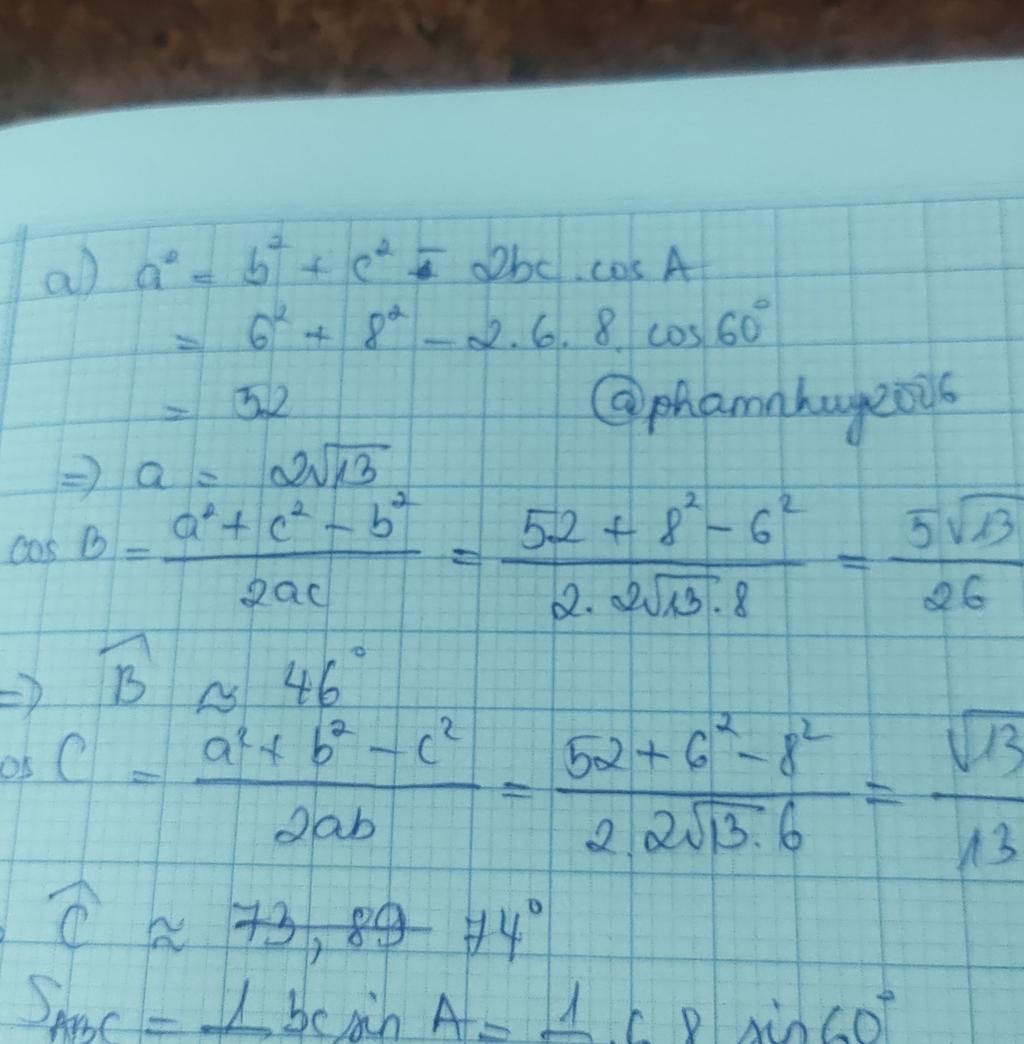 a) a² = b² + c² - 2bc . cos A
= 6² + 8² - 2.6. 8. cos 60°
= 52 @phamnhuy2006
=> a = 2√13
cos B = (a² + c² - b²)/(2ac) = (52 + 8² - 6²)/(2. 2√13 . 8) = (5√13)/26
=> B̂ ≈ 46°
os C = (a² + b² - c²)/(2ab) = (52 + 6² - 8²)/(2. 2√13 . 6) = √13/13
Ĉ ≈ 73,89 74°
S_ABC = 1 bc sin A = 1 . 6 8 sin 60°